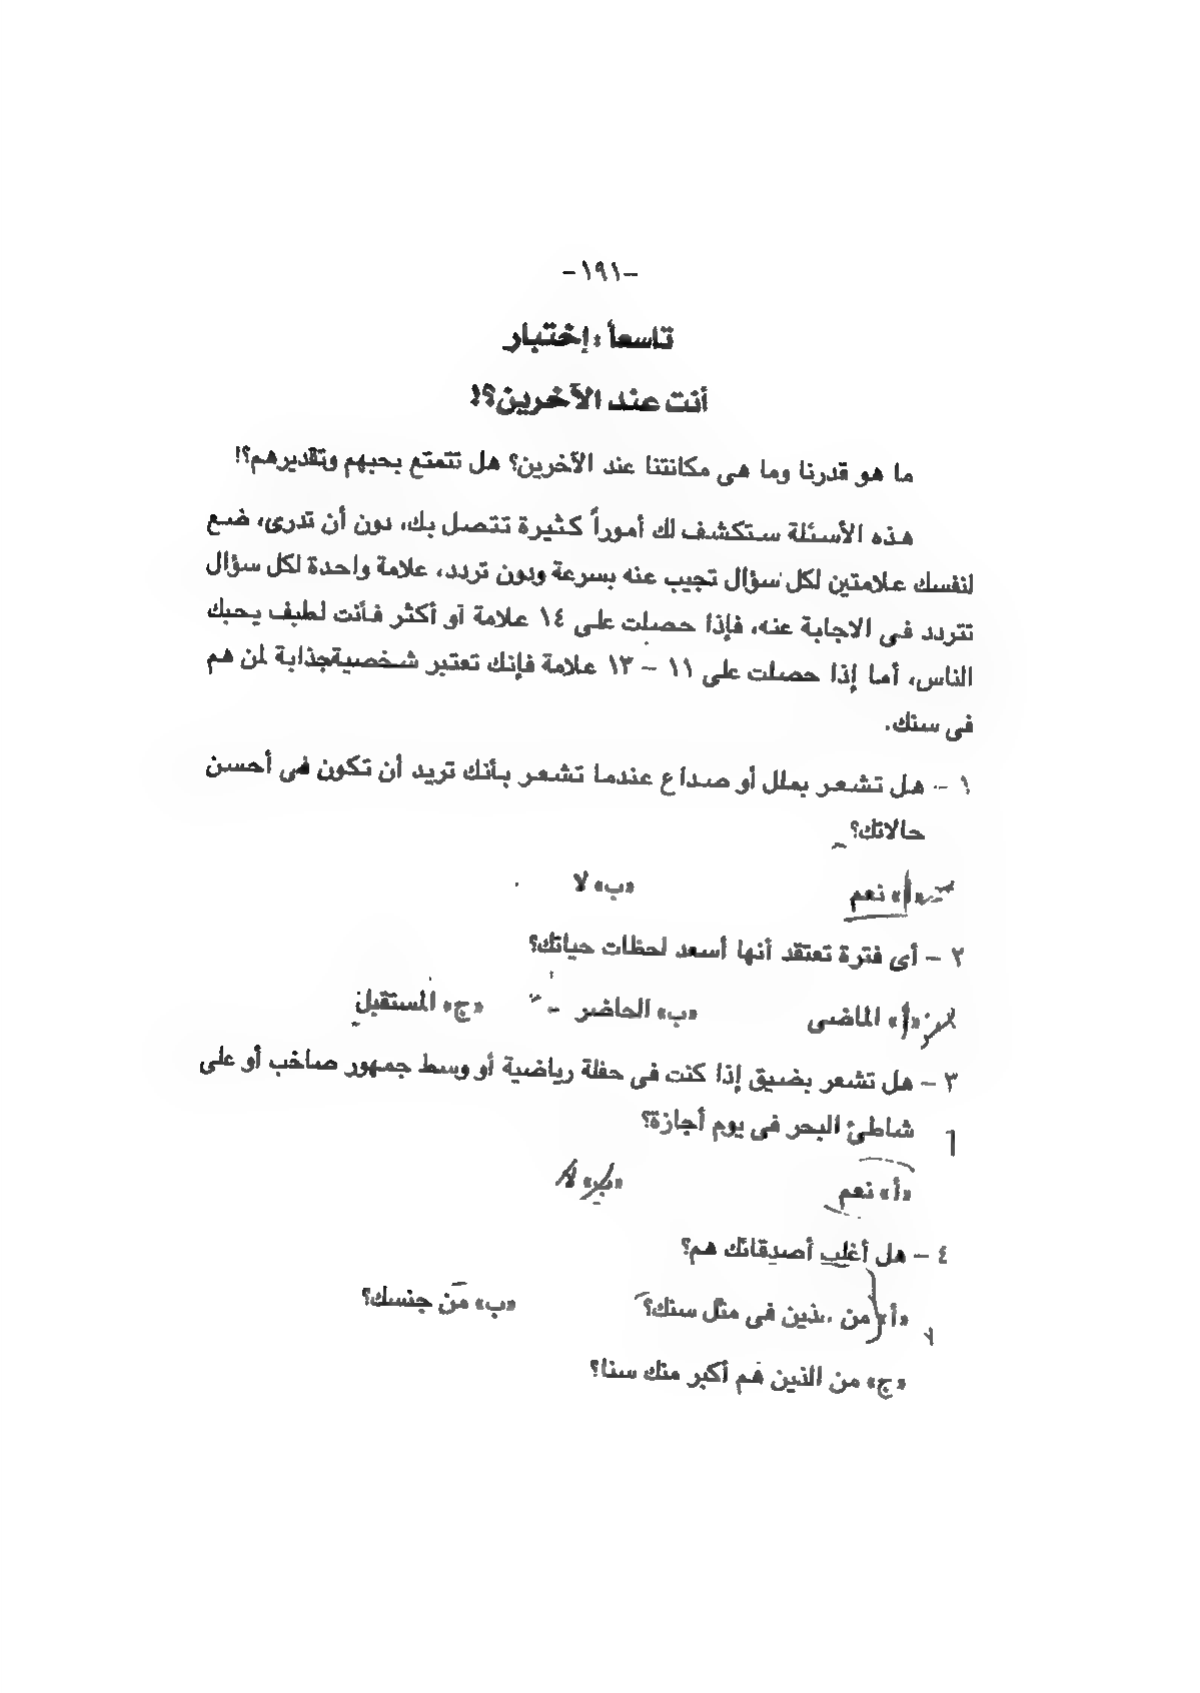 -١٩١-
تاسعاً : إختبار
أنت عند الآخرين؟!
ما هو قدرنا وما هى مكانتنا عند الآخرين؟ هل تتمتع بحبهم وتقديرهم؟!
هذه الأسئلة ستكشف لك أموراً كثيرة تتصل بك، دون أن تدرى، ضع
لنفسك علامتين لكل سؤال تجيب عنه بسرعة ودون تردد، علامة واحدة لكل سؤال
تتردد فى الاجابة عنه، فإذا حصلت على ١٤ علامة أو أكثر فأنت لطيف يحبك
الناس، أما إذا حصلت على ١١ - ١٣ علامة فإنك تعتبر شخصية جذابة لمن هم
فى سنك.
١ - هل تشعر بملل أو صداع عندما تشعر بأنك تريد أن تكون فى أحسن
حالاتك؟
«أ» نعم «ب» لا
٢ - أى فترة تعتقد أنها أسعد لحظات حياتك؟
«أ» الماضى «ب» الحاضر «ج» المستقبل
٣ - هل تشعر بضيق إذا كنت فى حفلة رياضية أو وسط جمهور صاخب أو على
شاطئ البحر فى يوم أجازة؟
«أ» نعم «ب» لا
٤ - هل أغلب أصدقائك هم؟
«أ» من فى مثل سنك؟ «ب» من جنسك؟
«ج» من الذين هم أكبر منك سنا؟